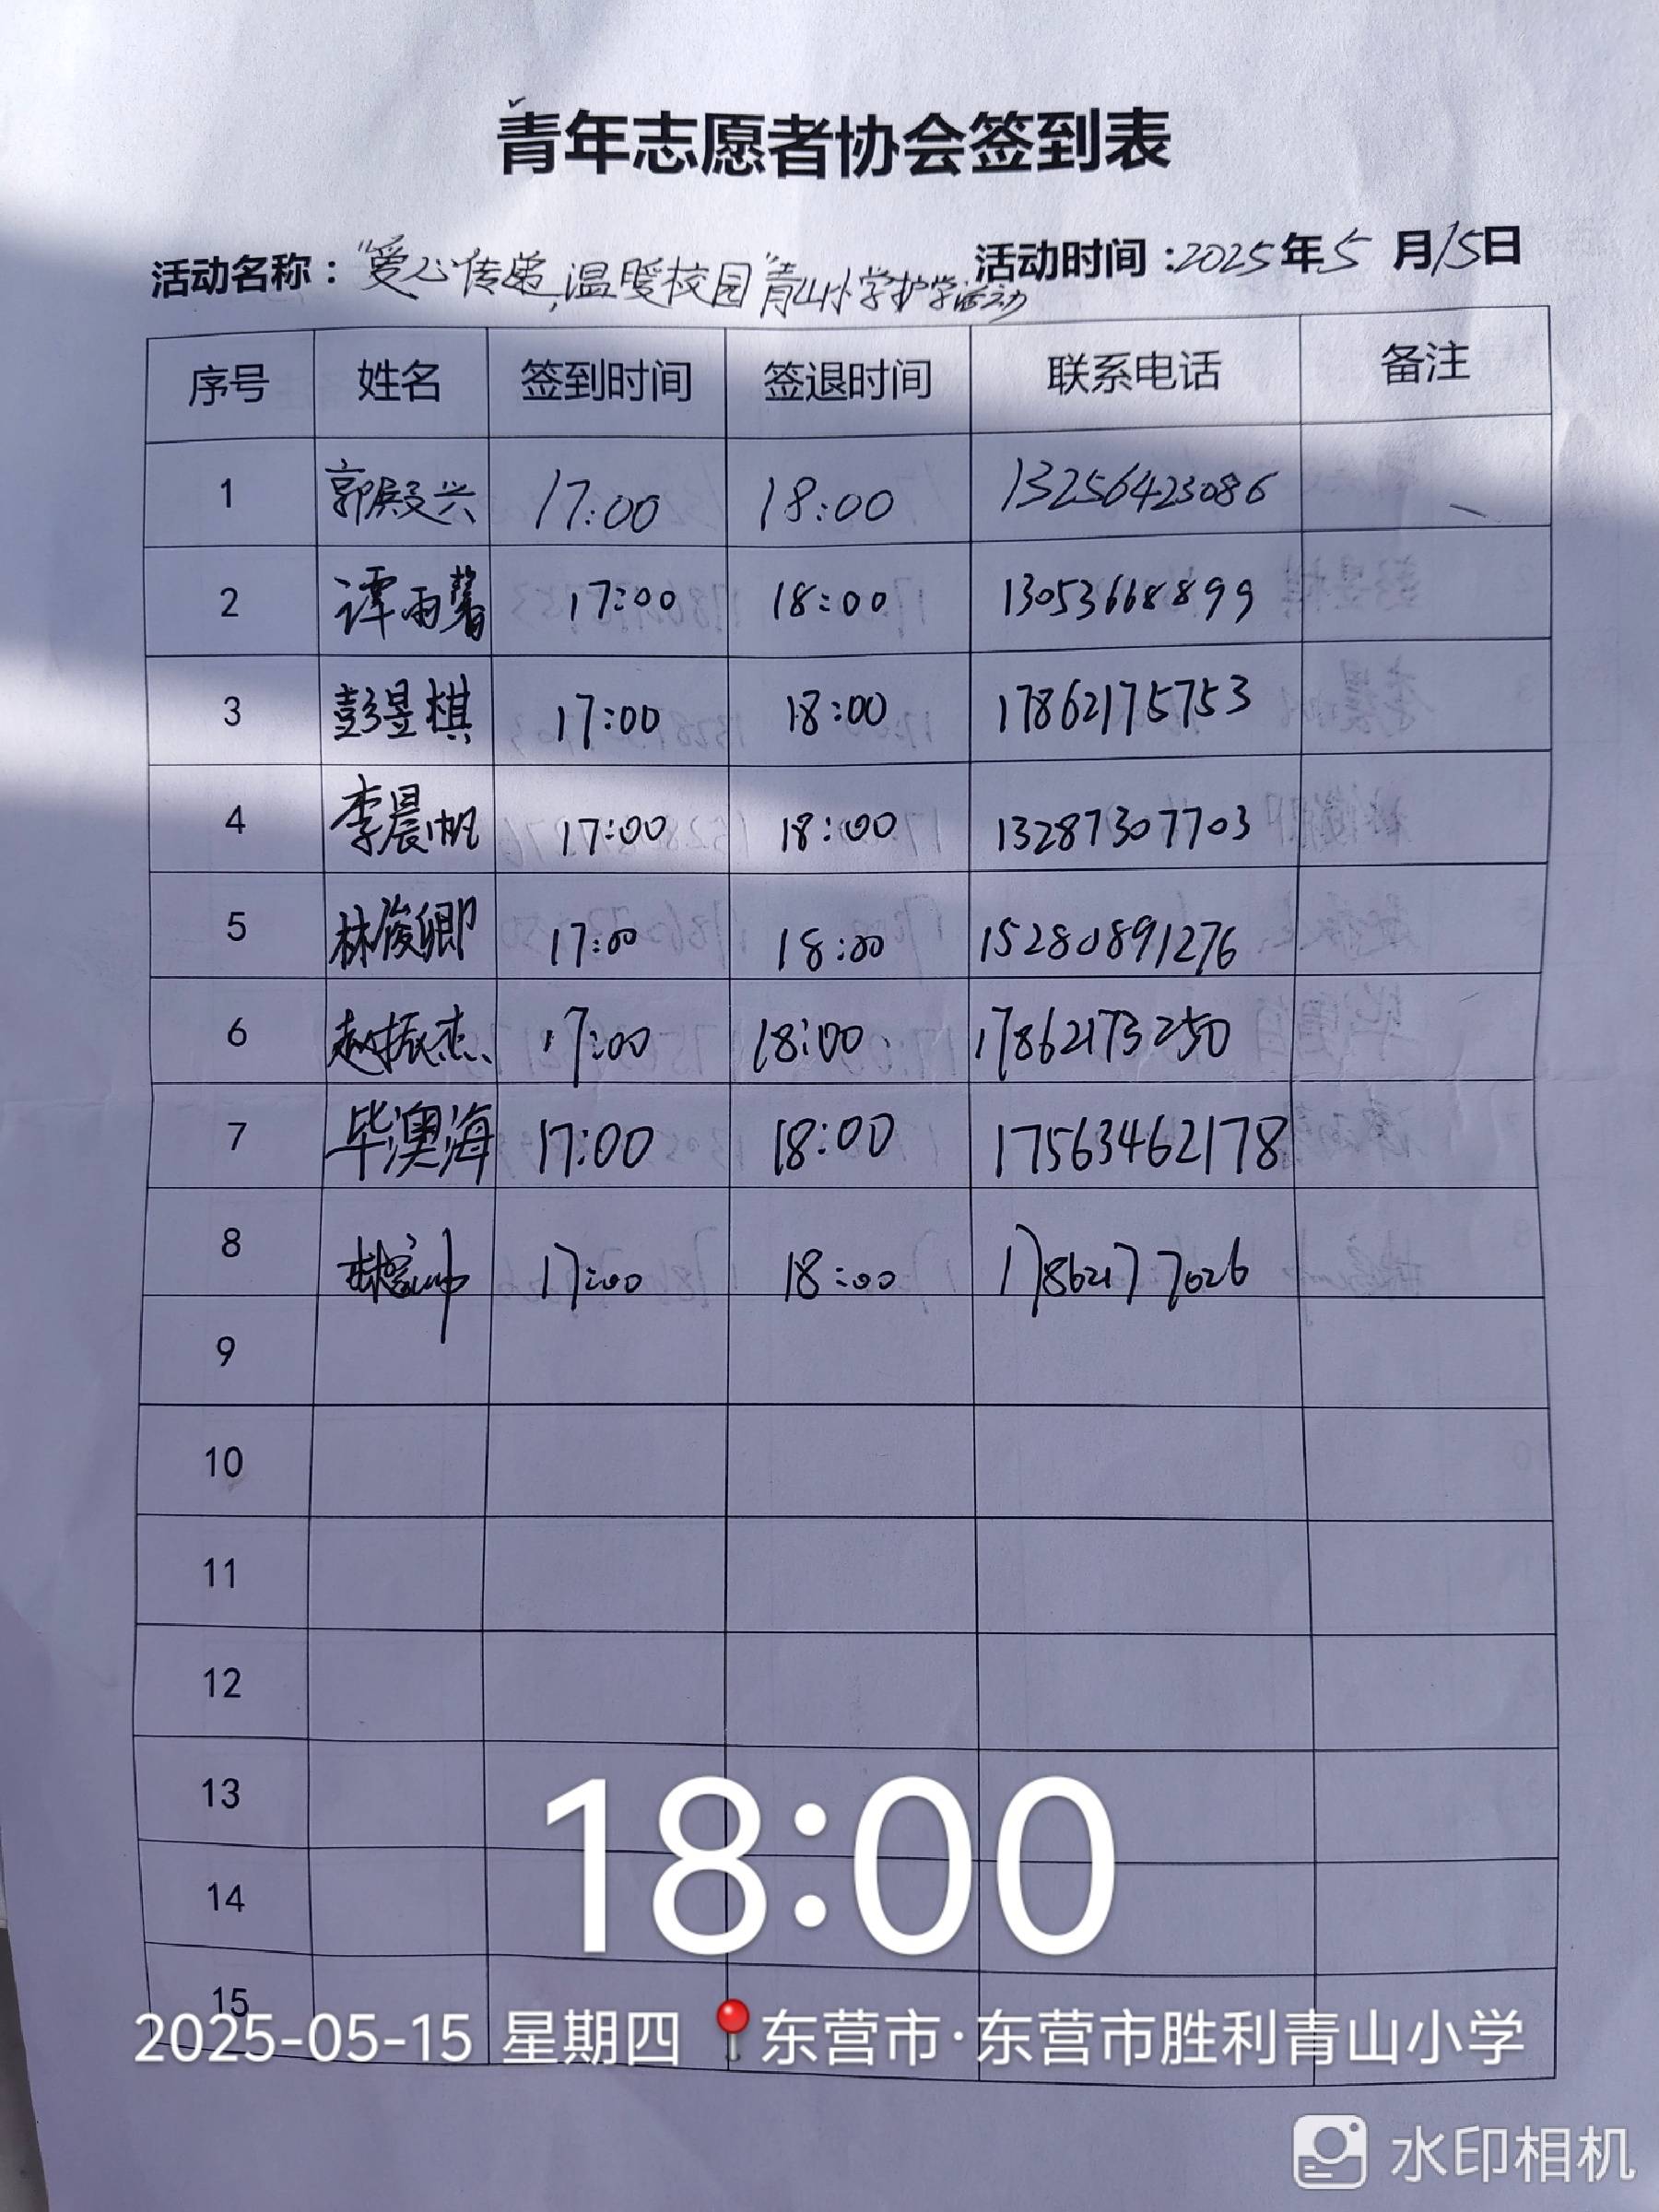 青年志愿者协会签到表
活动名称：“爱心传递,温暖校园”青山小学护学活动 活动时间：2025年5月15日
序号 姓名 签到时间 签退时间 联系电话 备注
1 郭殿兴 17:00 18:00 13256423086
2 谭雨馨 17:00 18:00 13053668899
3 彭昱棋 17:00 18:00 17862175753
4 李晨帆 17:00 18:00 13287307703
5 林俊卿 17:00 18:00 15280891276
6 赵振杰 17:00 18:00 17862173250
7 毕澳海 17:00 18:00 17563462178
8 17:00 18:00 17862177026
9
10
11
12
13
14
15
18:00
2025-05-15 星期四 东营市·东营市胜利青山小学
水印相机